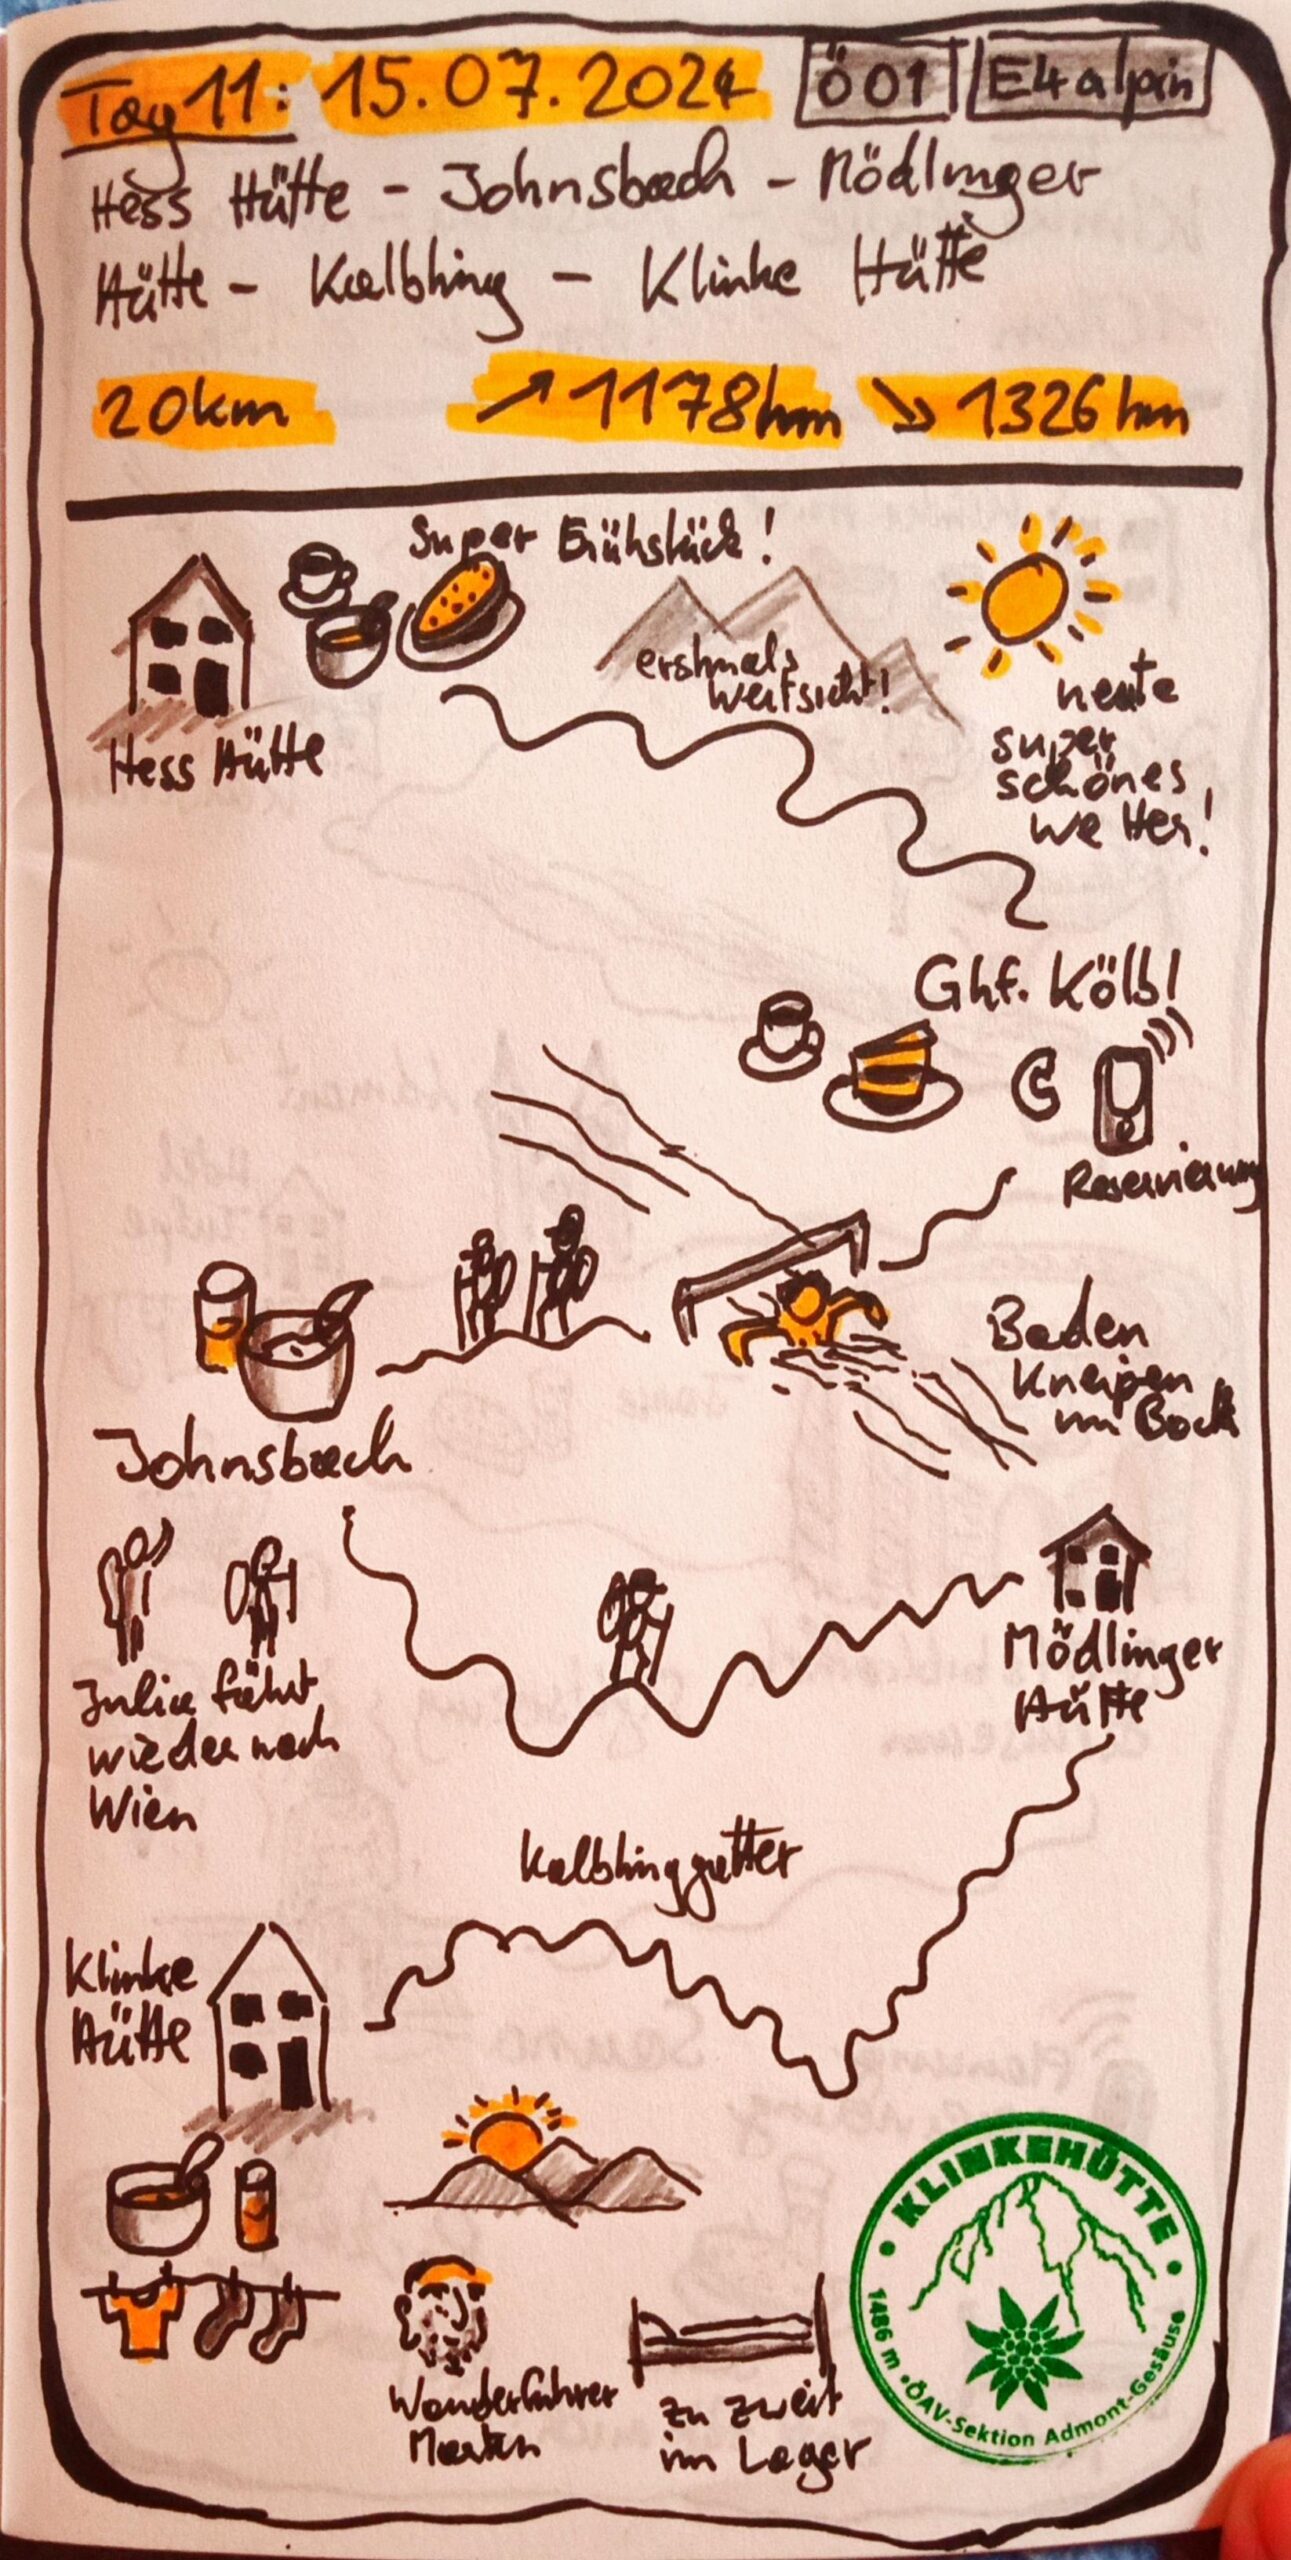 Tag 11: 15.07.2024 Ö01 E4alpin
Hess Hütte - Johnsbach - Mödlinger
Hütte - Kalbling - Klinke Hütte
20km ↗1178hm ↘1326hm
Super Frühstück!
erstmals
Weitsicht!
heute
super
schönes
Wetter!
Hess Hütte
Ghf. Kölbl
Reservierung
Baden
Kneipen
im Bach
Johnsbach
Julia fährt
wieder nach
Wien
Mödlinger
Hütte
Kalblinggatter
Klinke
Hütte
Wanderführer
Martin
zu zweit
im Lager
KLINKEHÜTTE
1486 m • ÖAV-Sektion Admont-Gesäuse